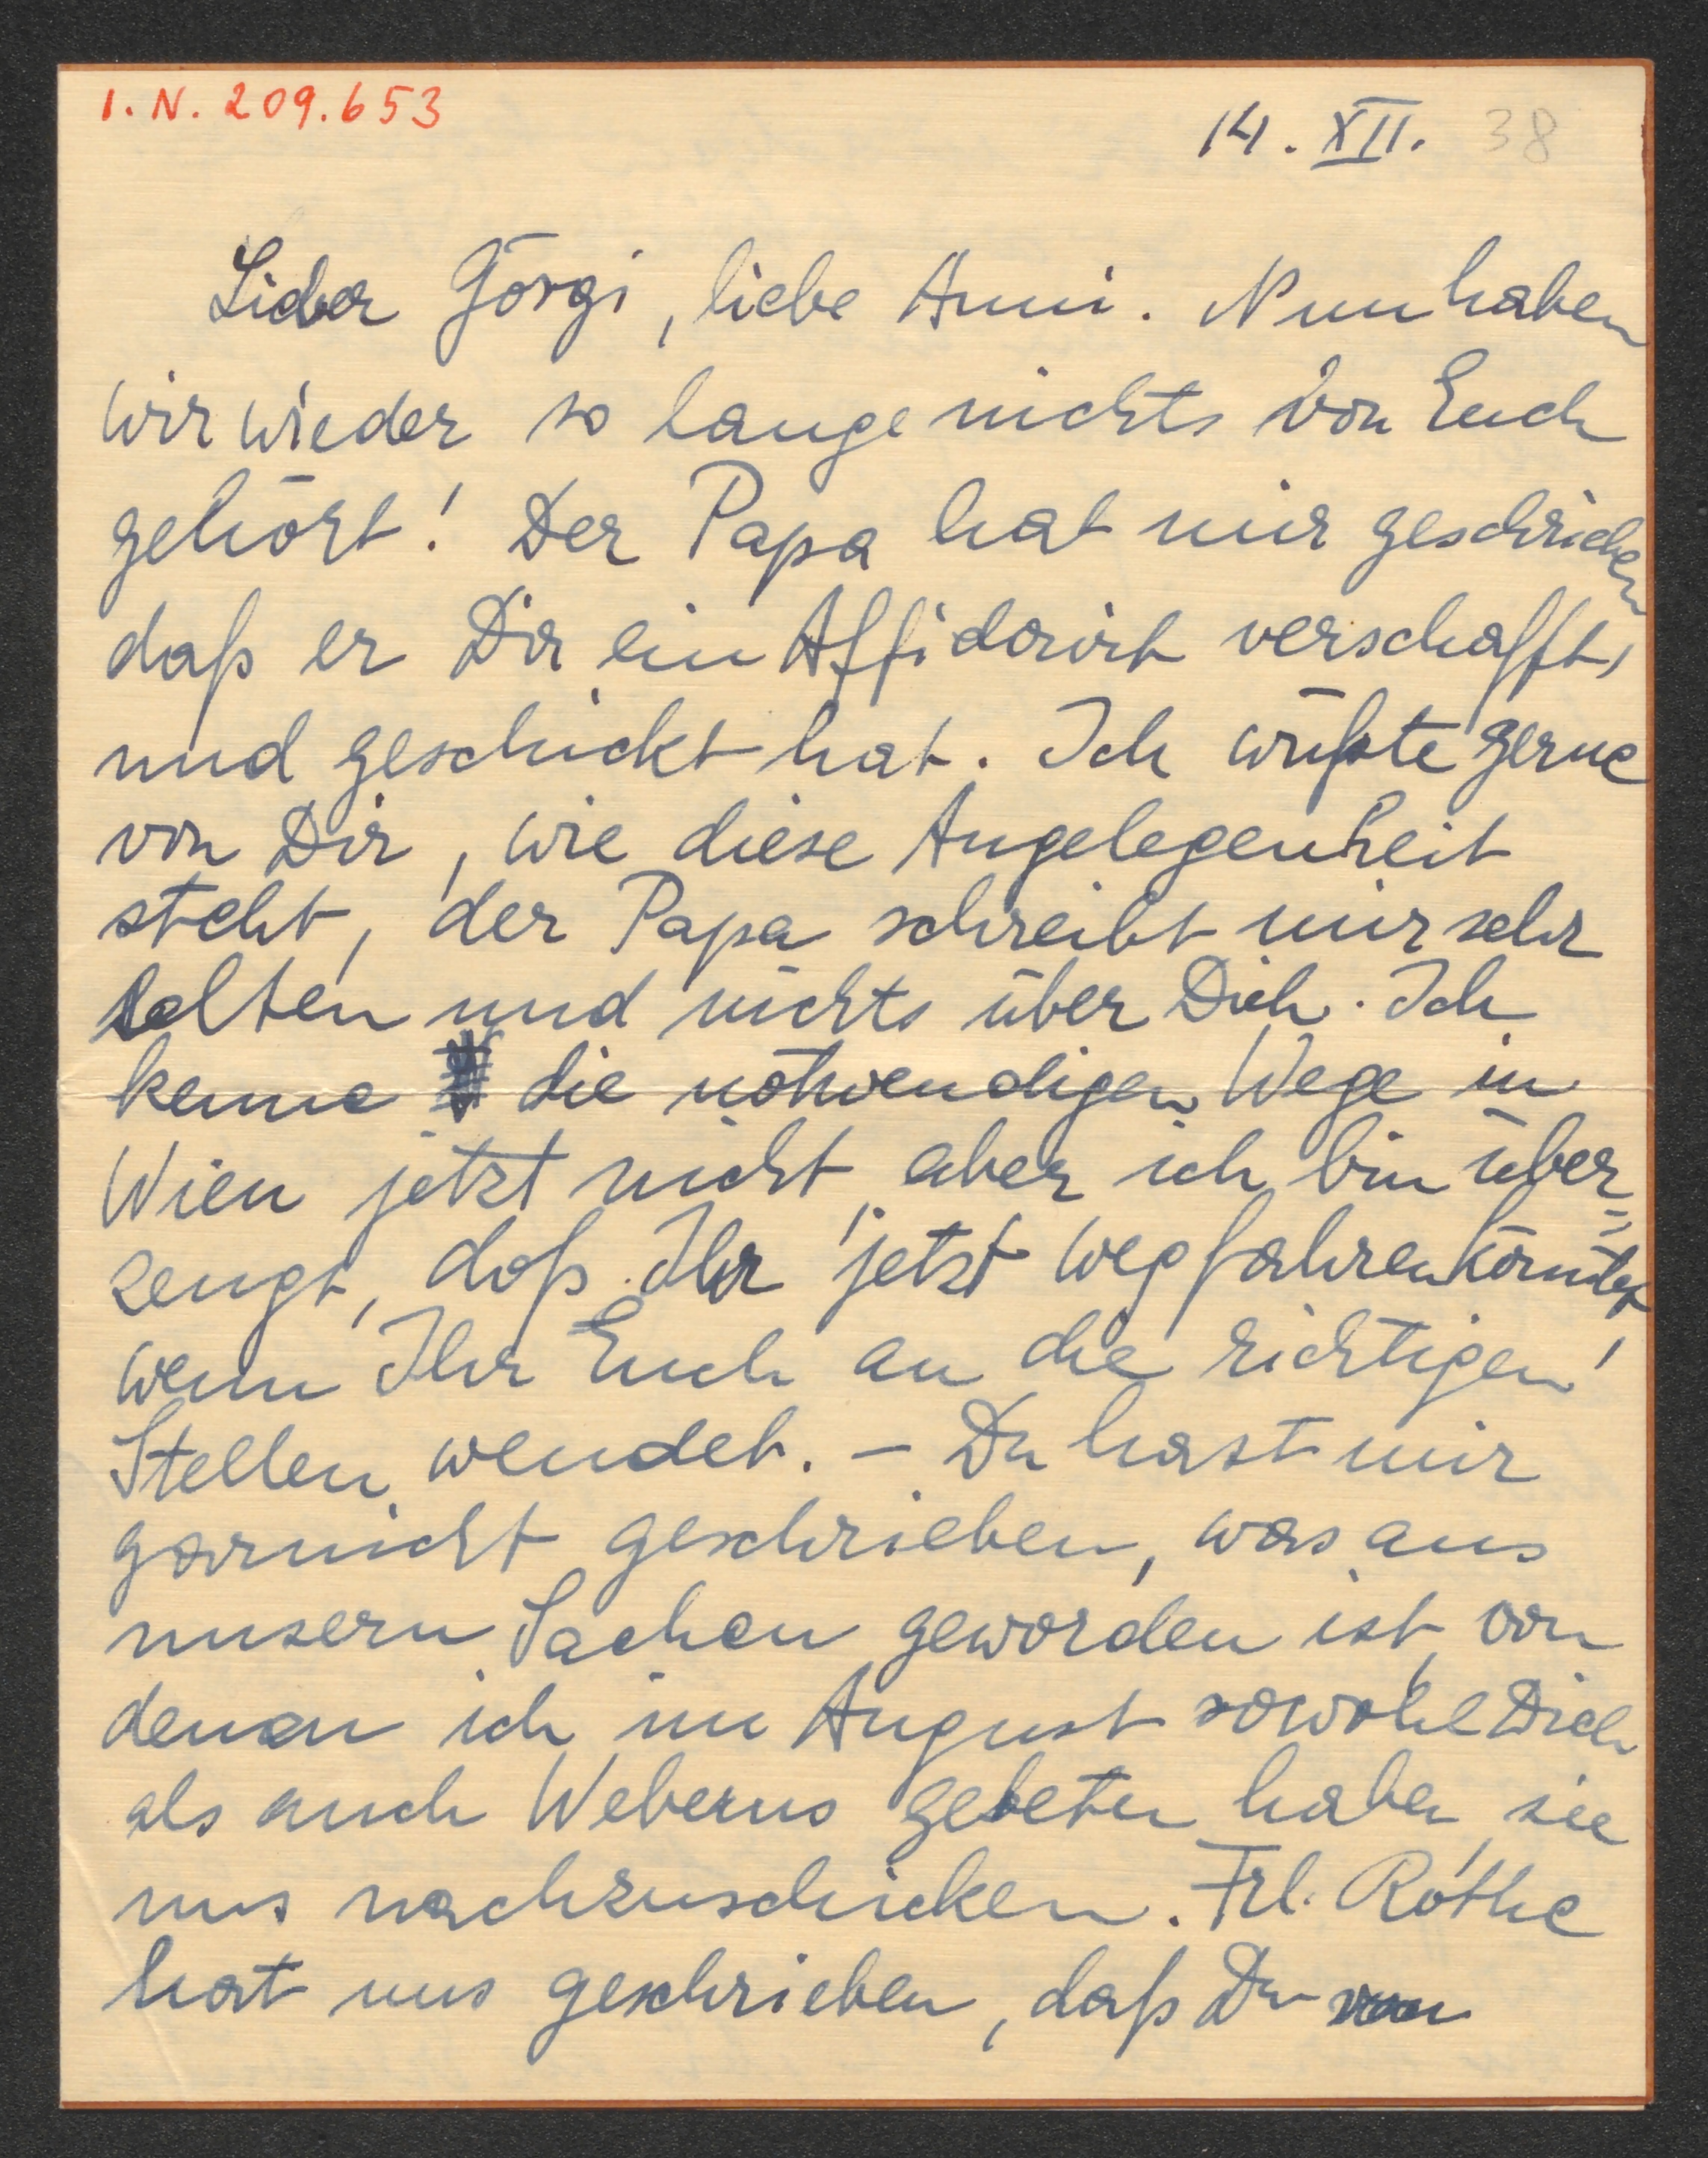 I.N. 209.653
14. XII. 38
Lieber Görgi, liebe Anni. Nun haben
wir wieder so lange nichts von Euch
gehört! Der Papa hat mir geschrieben
daß er Dir ein Affidavit verschafft,
und geschickt hat. Ich wüßte gerne
von Dir, wie diese Angelegenheit
steht, der Papa schreibt mir sehr
selten und nichts über Dich. Ich
kenne die notwendigen Wege in
Wien jetzt nicht, aber ich bin über=
zeugt, daß Ihr jetzt wegfahren könntet,
wenn Ihr Euch an die richtigen
Stellen wendet. – Du hast mir
garnicht geschrieben, was aus
unsern Sachen geworden ist, von
denen ich im August sowohl Dich
als auch Weberns gebeten habe, sie
uns nachzuschicken. Frl. Röthe
hat uns geschrieben, daß Du von